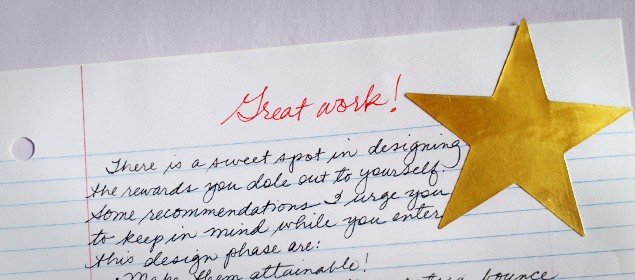 Great work!
There is a sweet spot in designing
the rewards you dole out to yourself.
Some recommendations I urge you
to keep in mind while you enter
this design phase are:
• Make them attainable! bounce